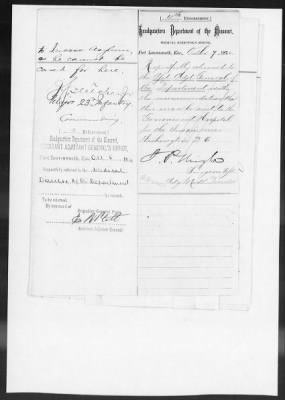 to Insane Asylum,
as he cannot be
cared for here.
Major 23d Infantry
Commanding
Endorsement
Headquarters Department of the Missouri,
ASSISTANT ADJUTANT GENERAL'S OFFICE,
Fort Leavenworth, Kas., Oct. 4
Respectfully referred to the Medical
Director of the Department
To be returned.
By command of
Brigadier General Pope:
E. R. Platt
Assistant Adjutant General
Endorsement
Headquarters Department of the Missouri,
MEDICAL DIRECTOR'S OFFICE,
Fort Leavenworth, Kas., Oct. 7
Respectfully returned to
the Asst Adjt General of
the Department with
the recommendation that
this man be sent to the
Government Hospital
for the Insane
Washington D.C.
Surgeon